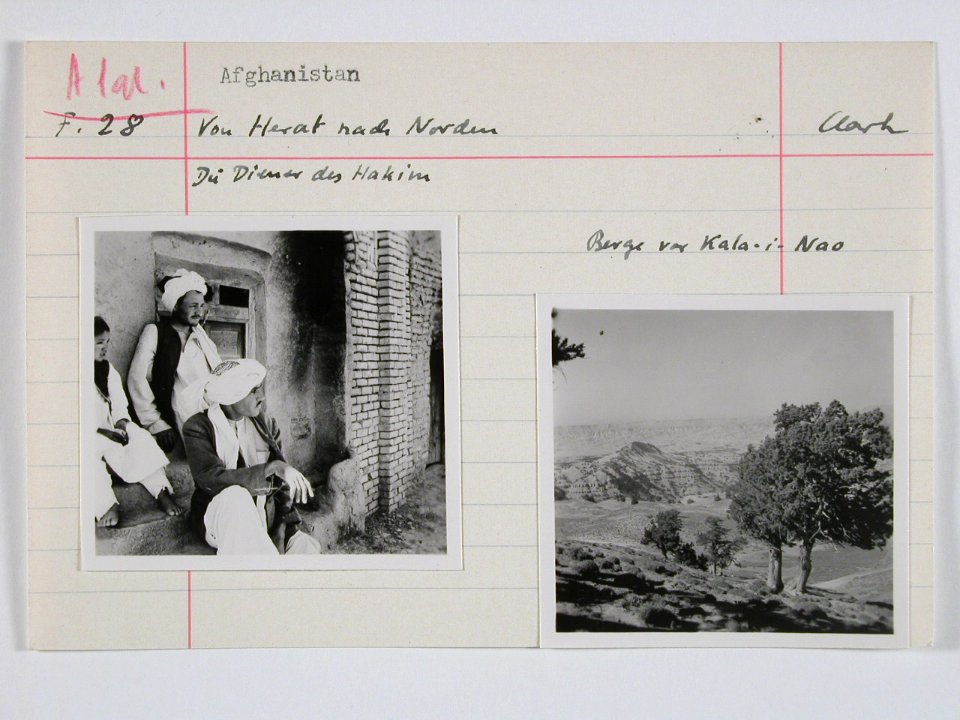 Alal.
Afghanistan
F. 28
Von Herat nach Norden
Clark
Die Diener des Hakim
Berge vor Kala-i-Nao